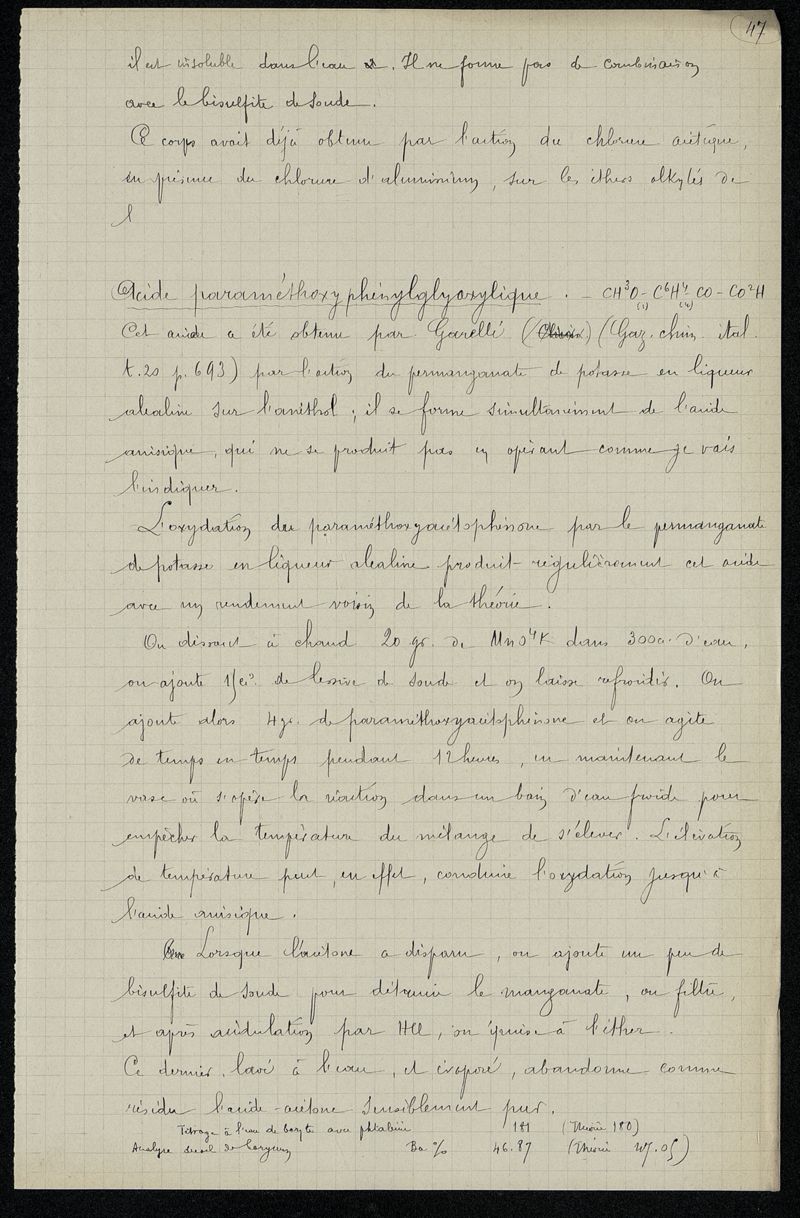 47
il est insoluble dans l'eau. Il ne forme pas de combinaison
avec le bisulfite de soude.
Ce corps avait déjà obtenu par l'action du chlorure acétique,
en présence du chlorure d'aluminium, sur les éthers alkylés de
l
Acide paraméthoxyphénylglyoxylique. — CH³O – C⁶H⁴ – CO – CO²H
(1) (4)
Cet acide a été obtenu par Garelli (Gaz. chim. ital.
t. 20 p. 693) par l'action du permanganate de potasse en liqueur
alcaline sur l'anéthol ; il se forme simultanément de l'acide
anisique, qui ne se produit pas en opérant comme je vais
l'indiquer.
L'oxydation du paraméthoxyacétophénone par le permanganate
de potasse en liqueur alcaline produit régulièrement cet acide
avec un rendement voisin de la théorie.
On dissout à chaud 20 gr. de MnO⁴K dans 300cc. d'eau,
on ajoute de lessive de soude et on laisse refroidir. On
ajoute alors 4 gr. de paraméthoxyacétophénone et on agite
de temps en temps pendant 12 heures, en maintenant le
vase où s'opère la réaction dans un bain d'eau froide pour
empêcher la température du mélange de s'élever. L'élévation
de température peut, en effet, conduire l'oxydation jusqu'à
l'acide anisique.
Lorsque l'acétone a disparu, on ajoute un peu de
bisulfite de soude pour détruire le manganate, on filtre,
et après acidulation par HCl, on épuise à l'éther.
Ce dernier, lavé à l'eau, et évaporé, abandonne comme
résidu l'acide-acétone sensiblement pur.
Titrage à l'eau de baryte avec phtaléine 181 (Théorie 180)
Analyse du sel de baryum Ba % 46.87 (Théorie 47.05)